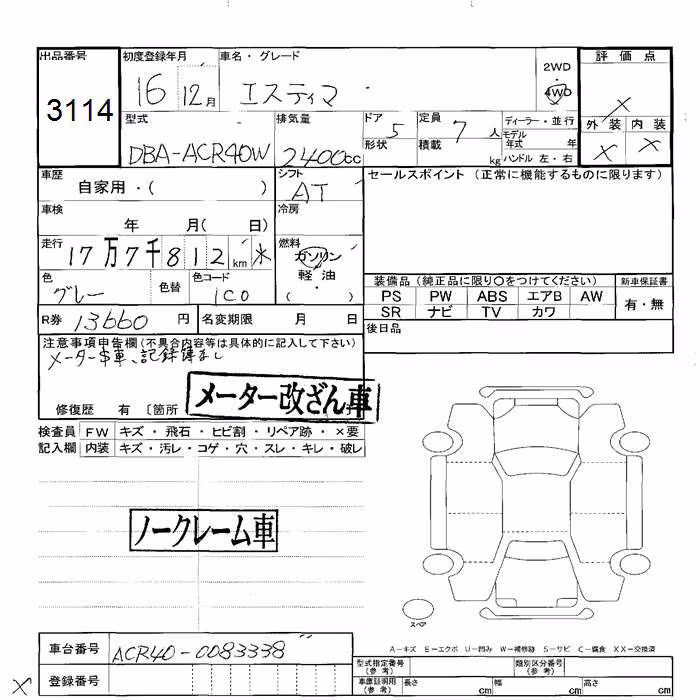 出品番号 初度登録年月 車名・グレード 評価点
3114 16 12月 エスティマ 2WD 4WD ×
型式 排気量 ドア 5 定員 7人 ディーラー・並行 外装 内装
形状 積載 kg モデル年式 年
DBA-ACR40W 2400cc ハンドル 左・右 × ×
車歴 自家用・( ) シフト AT セールスポイント (正常に機能するものに限ります)
車検 年 月( 日) 冷房
走行 17万7千812km 燃料 ガソリン
軽油
( )
色 グレー 色替 色コード 1C0 装備品 (純正品に限り〇をつけてください) 新車保証書
PS PW ABS エアB AW 有・無
SR ナビ TV カワ
R券 13660円 名変期限 月 日 後日品
注意事項申告欄(不具合内容等は具体的に記入して下さい)
メーター 車、記録簿なし
メーター改ざん車
修復歴 有 〔箇所
検査員 FW キズ・飛石・ヒビ割・リペア跡・×要
記入欄 内装 キズ・汚レ・コゲ・穴・スレ・キレ・破レ
ノークレーム車
スペア
A−キズ E−エクボ U−凹み W−補修跡 S−サビ C−腐食 XX−交換済
車台番号 ACR40-0083338
型式指定番号(参考) 類別区分番号(参考)
× 登録番号
車庫証明用(参考) 長さ cm 幅 cm 高さ cm